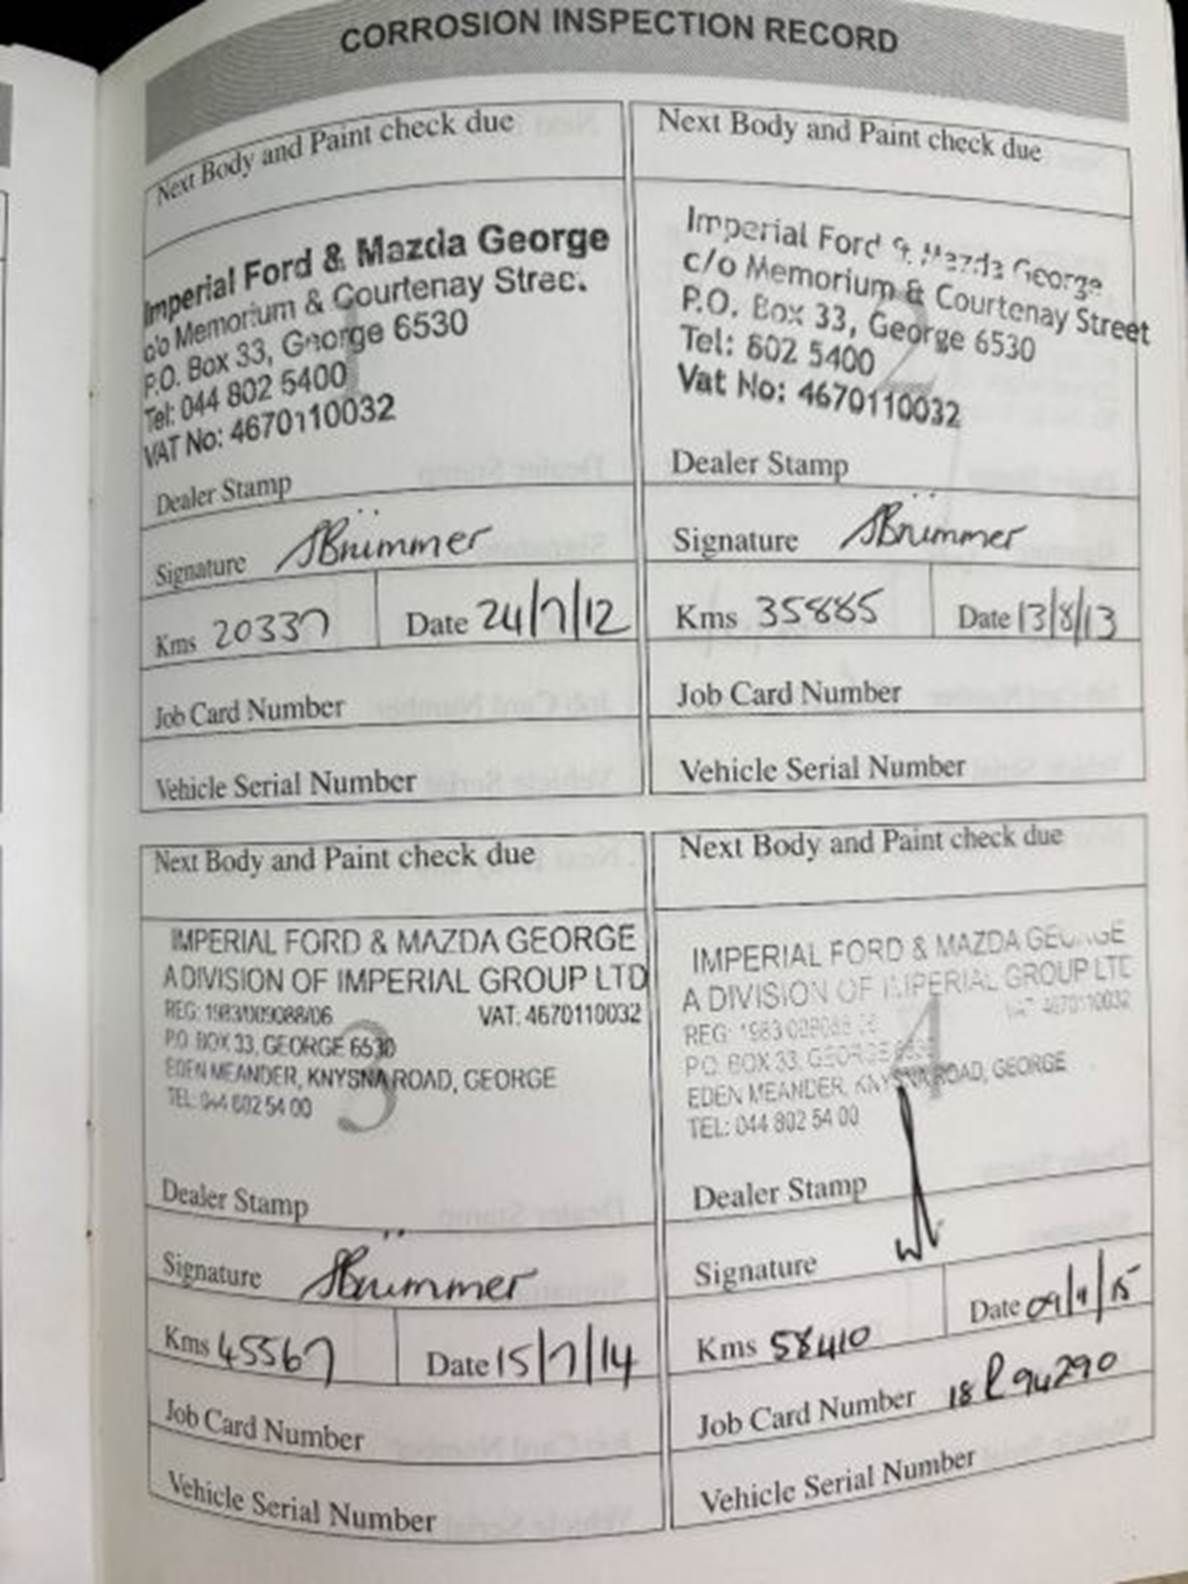 CORROSION INSPECTION RECORD
Next Body and Paint check due
Imperial Ford & Mazda George
c/o Memorium & Courtenay Street
P.O. Box 33, George 6530
Tel: 044 802 5400
VAT No: 4670110032
1
Dealer Stamp
Signature SBrümmer
Kms 20337 Date 24/7/12
Job Card Number
Vehicle Serial Number
Next Body and Paint check due
Imperial Ford & Mazda George
c/o Memorium & Courtenay Street
P.O. Box 33, George 6530
Tel: 802 5400
Vat No: 4670110032
2
Dealer Stamp
Signature SBrümmer
Kms 35885 Date 13/8/13
Job Card Number
Vehicle Serial Number
Next Body and Paint check due
IMPERIAL FORD & MAZDA GEORGE
A DIVISION OF IMPERIAL GROUP LTD
REG: 1983/009088/06 VAT: 4670110032
P.O. BOX 33, GEORGE 6530
EDEN MEANDER, KNYSNA ROAD, GEORGE
TEL: 044 802 54 00
3
Dealer Stamp
Signature SBrümmer
Kms 45567 Date 15/7/14
Job Card Number
Vehicle Serial Number
Next Body and Paint check due
IMPERIAL FORD & MAZDA GEORGE
A DIVISION OF IMPERIAL GROUP LTD
REG: 1983/009088/06 VAT: 4670110032
P.O. BOX 33, GEORGE 6530
EDEN MEANDER, KNYSNA ROAD, GEORGE
TEL: 044 802 54 00
4
Dealer Stamp
Signature
Kms 58410 Date
Job Card Number
Vehicle Serial Number